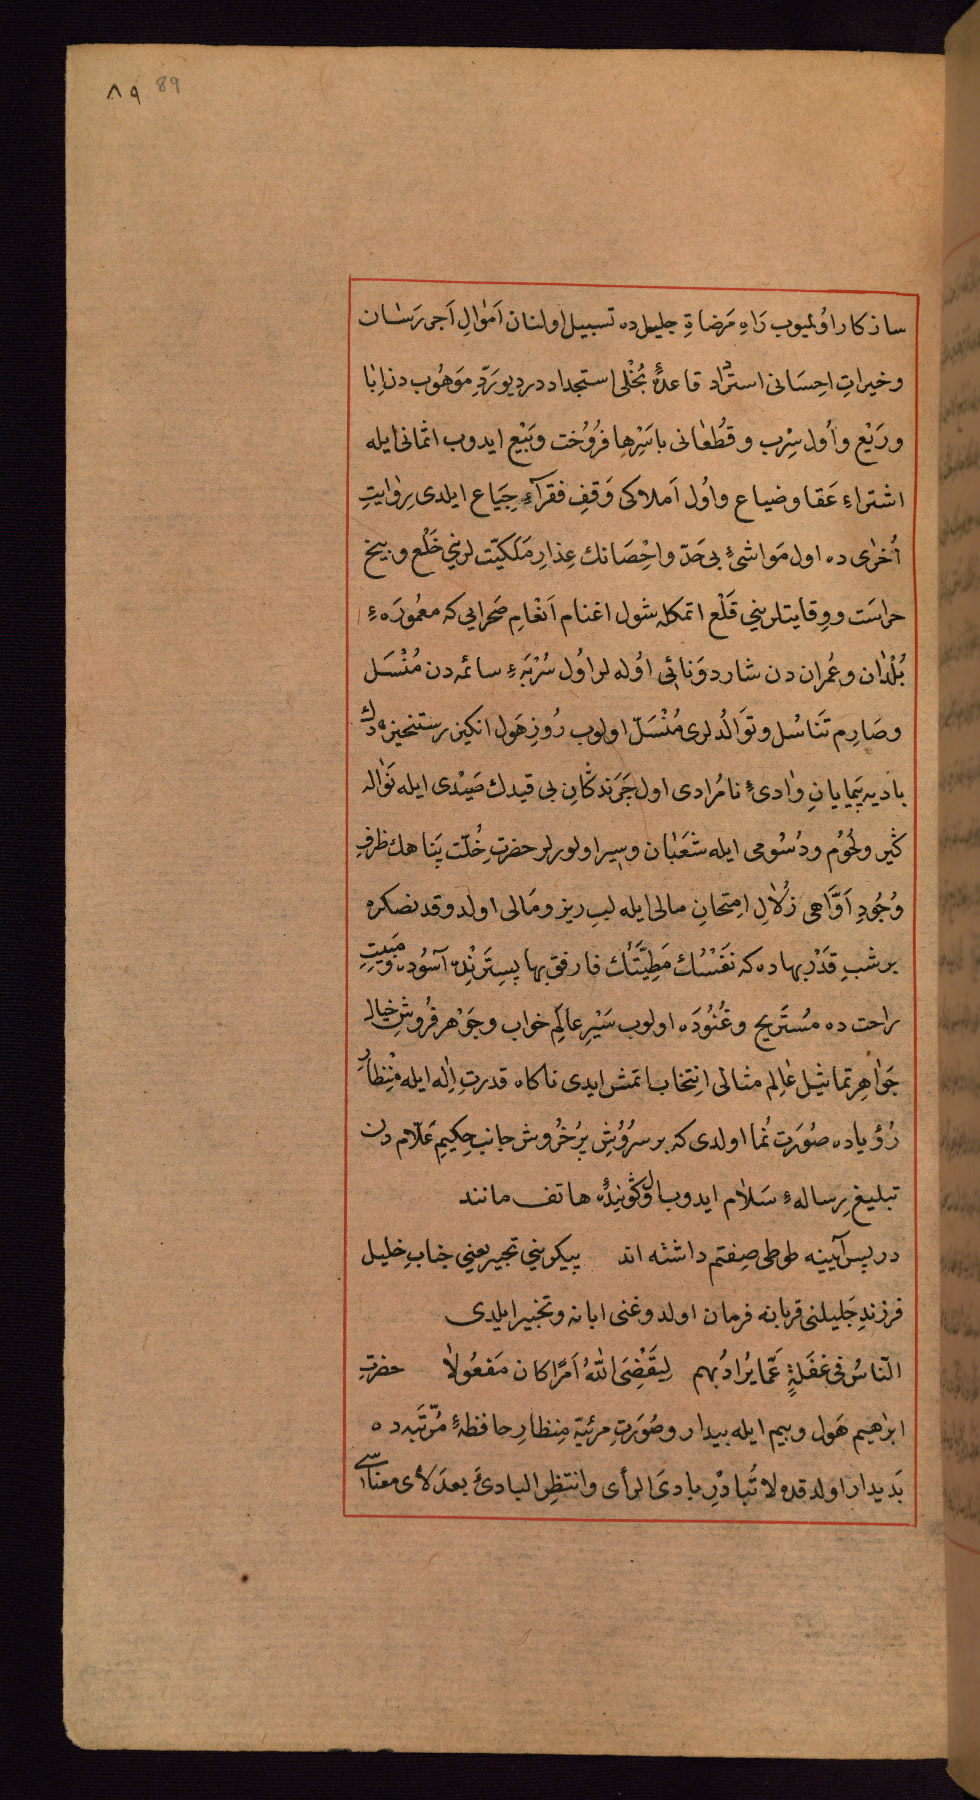 ۸۹ 89
سازكار اولميوب رَاهِ مَرضاةِ جليلده تسبيل اولنان اَموٰالِ اَجر رَسَان
وخيراتِ احِسَانی استرداد قاعدۀٔ بُخْلی استجداد دردیو رَدِّ مَوهُوب دن اِبٰا
ورَيْع واُول سِرْب وقُطْعٰانی باسَرِها فرُوُخت وبَيْع ايدوب اثمانی ايله
اشتراءِ عَقا وضياع واوُل اَملاكی وَقفِ فقرآءِ جِيَاع ايلدی رِوٰايتِ
اُخرٰی ده اول مَواشیٔ بی حَدّ واحْصَانك عِذارِ مَلَكيّت لرينی خَلْع وبيخ
حراسَت ووِقايتلرينی قَلْع اتمكله شول اغنام اَنْعٰامِ صَحرايی كه معمُورَهءِ
بُلْدٰان وعُمران دن شارد ونَائی اوُله لر اوُل سُرْبَهءِ سائمه دن مُنْسَل
وصَارِم تَناسُل وتوَالُدلری مُنْسَلّ اولوب رُوزِ هَول انكيزِ رستخيزه دك
باديه پَيمايانِ وٰادیٔ نامُرادی اول چَرَندكَانِ بی قيدك صَيْدی ايله نَوٰاله
كثير ولحُوُم ودُسُومی ايله شَعْبٰان وسير اولورلر حضرتِ خُلّت پَناهك ظرفِ
وُجُودِ اَوَّاهی زُلاٰلِ امِتحانِ مالی ايله لبِ ريز ومَالی اولدوقدنصكره
بر شبِ قَدْر بهاده كه نفَسُك مَطِيَّتُك فارفق بها بِستَرندہ آسُوده ومَبيتِ
راحت ده مسُتَريح وغُنُوُدَه اولوب سَيْرِ عالَمِ خواب وجَوْهر فُروشِ خيال
جَوٰاهِر تماثيل عٰالِم مثالی انِتخاب اتمش ايدی ناكاه قدرتِ اِلٰه ايله منِظارِ
رُؤياده صُوَرت نُما اولدی كه بر سرُوُشِ پُرخُروش جانبِ حكِيمِ عَلّام دن
تبليغِ رِسالهءِ سَلاٰم ايدوب اول كَويندۀٔ هاتف مانند
در پس آيينه طوطی صفتم داشته اند پيكرينی تجير يعنی جنابِ خليل
فرزندِ جَليلنی قربانه فرمان اولدوغنی ابانه وتخبير ايلدی
النّاسُ فی غفَلةٍ عَمّا يُرادُ بهم لِيقَضِیَ اللهُ اَمرًا كان مَفعُولاً حضرتِ
ابرٰهيم هَول وبيم ايله بيدار وصُوَرتِ مرئيّهٔ منِظارِ حافظهٔ مُرّتَبه ده
بَديدار اولدقده لا تُبادْرِ بادیَ الرأی وانتظِر البادیٔ بعدَ لأی معناسی